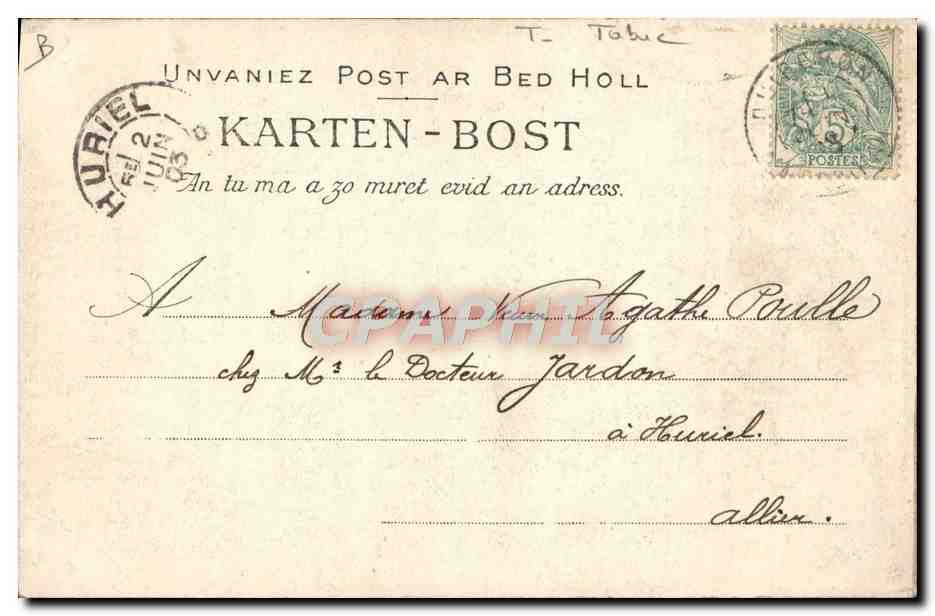 B
T- Tabac
UNVANIEZ POST AR BED HOLL
KARTEN-BOST
An tu ma a zo miret evid an adress.
HURIEL
2
JUIN
03
5
POSTES
CPAPHIL
A Madame Veuve Agathe Poulle
chez Mr le Docteur Jardon
à Huriel.
allier.